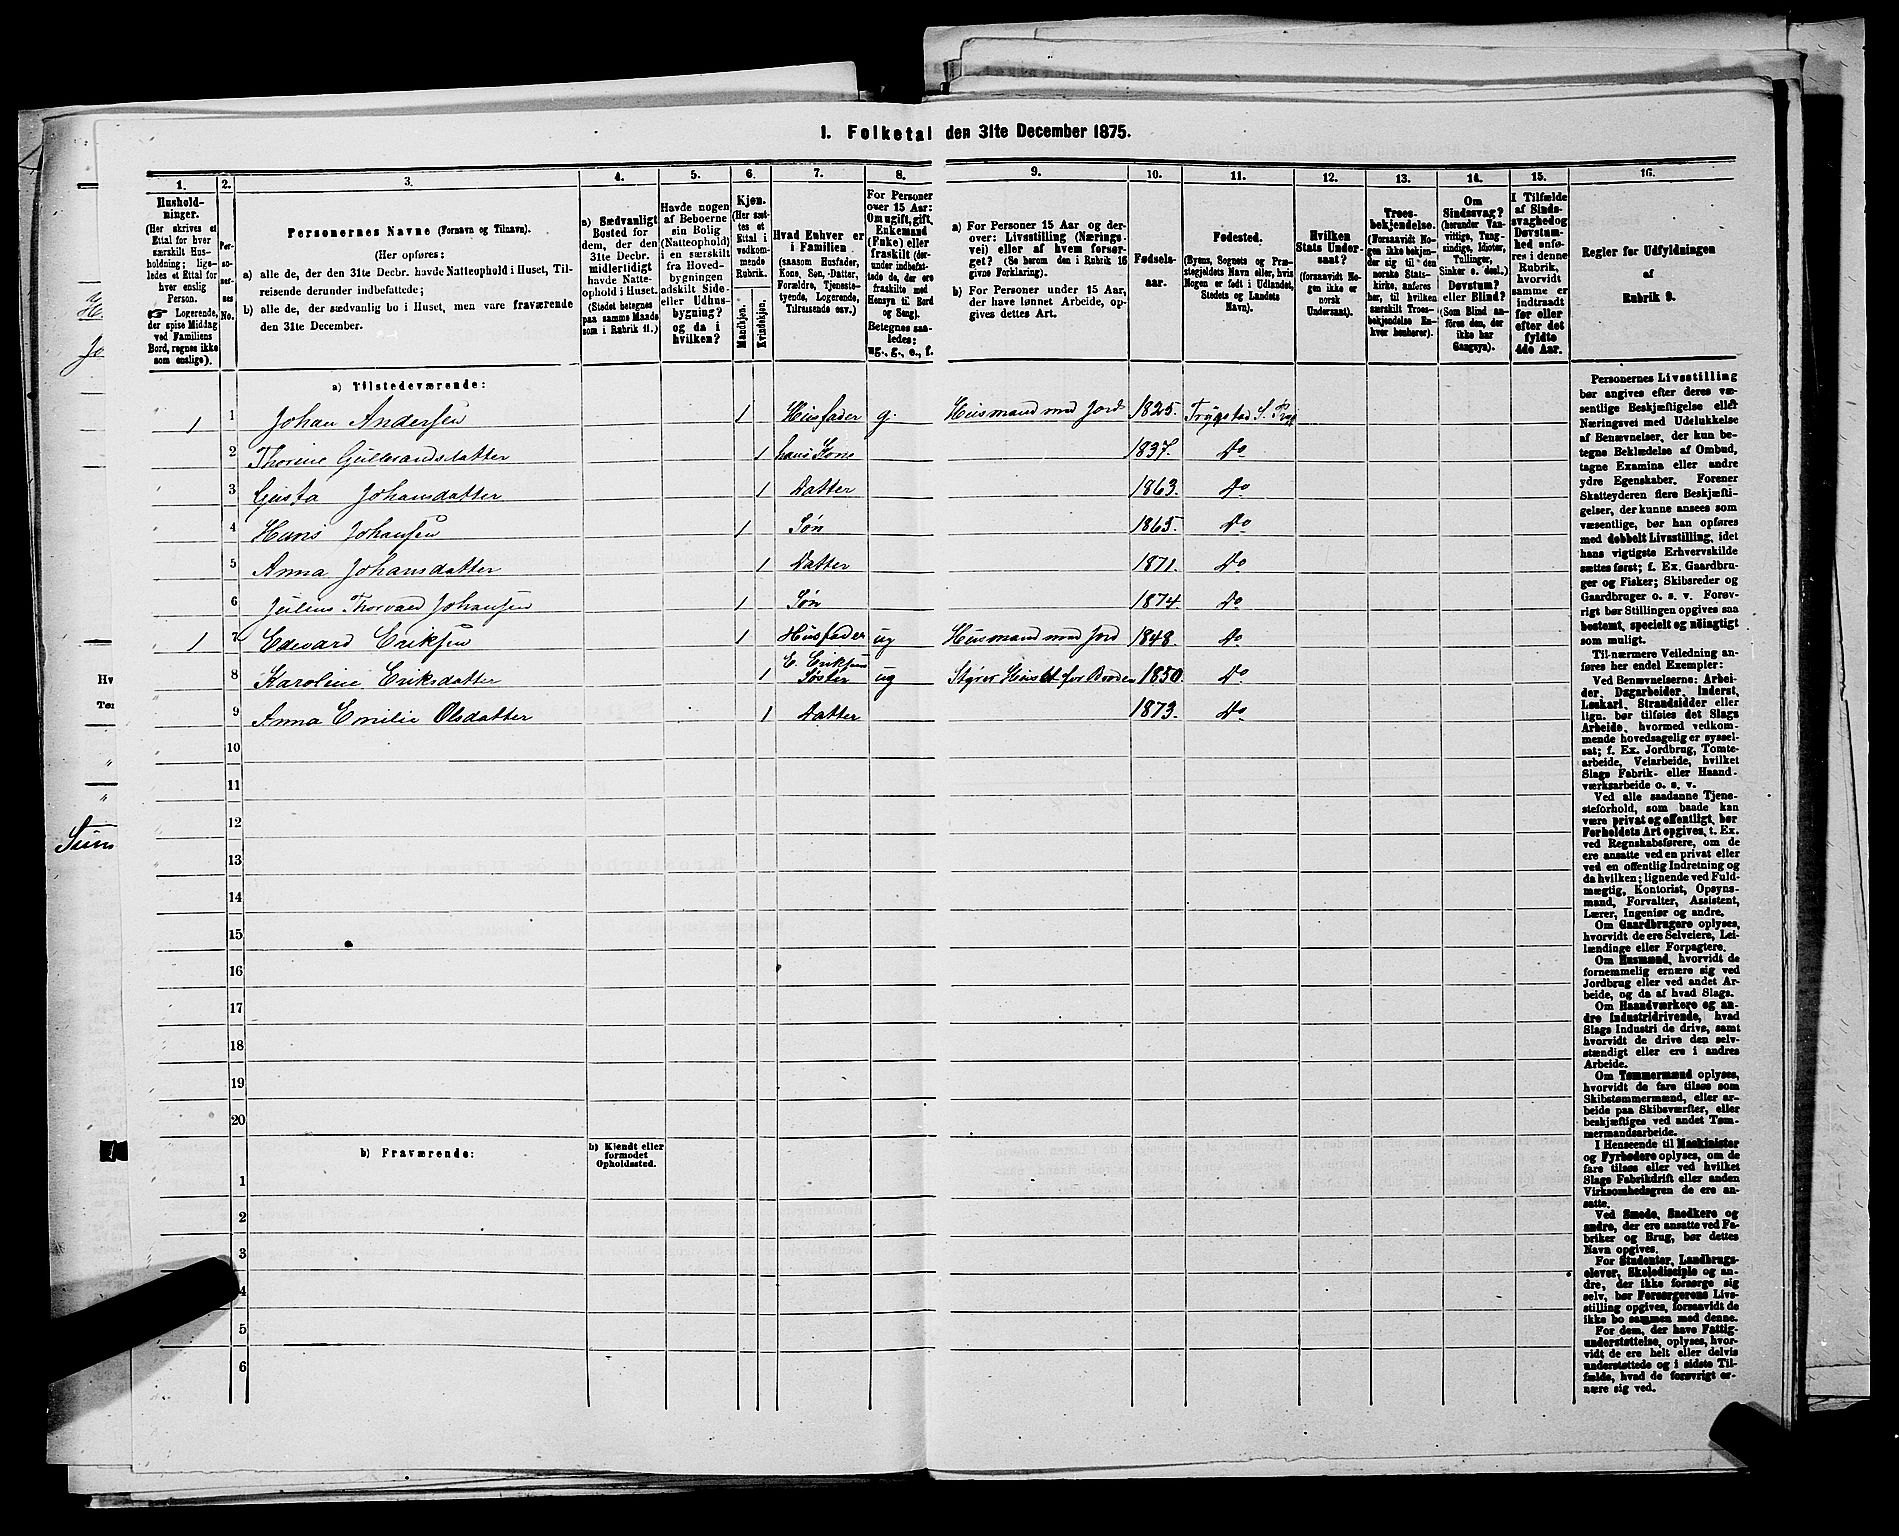 1. Folketal den 31te December 1875.
1.
Husholdninger.
(Her skrives et
Ettal for hver
særskilt Husholdning;
ligeledes et Ettal for
hver enslig
Person.
☞ Logerende,
der spise Middag
ved Familiens
Bord, regnes ikke
som enslige).
2.
Personernes
No.
3.
Personernes Navne (Fornavn og Tilnavn).
(Her opføres:
a) alle de, der den 31te Decbr. havde Natteophold i Huset, Tilreisende derunder indbefattede;
b) alle de, der sædvanlig bo i Huset, men vare fraværende den 31te December.
4.
a) Sædvanligt
Bosted for
dem, der den
31te Decbr.
midlertidigt
havde Natteophold i Huset.
(Stedet betegnes
paa samme Maade
som i Rubrik 11.)
5.
Havde nogen
af Beboerne
sin Bolig
(Natteophold)
i en særskilt
fra Hovedbygningen
adskilt Side- eller Udhusbygning?
og da i
hvilken?
6.
Kjøn.
(Her sættes et
Ettal i
vedkommende
Rubrik.
Mandkjøn.
Kvindekjøn.
7.
Hvad Enhver er
i Familien
(saasom Husfader,
Kone, Søn, Datter,
Forældre, Tjenestetyende, Logerende,
Tilreisende osv.)
8.
For Personer
over 15 Aar:
Om ugift, gift,
Enkemand
(Enke) eller
fraskilt (derunder indbefattede de, der ere
fraskilte med
Hensyn til Bord
og Seng).
Betegnes saaledes:
ug., g., e., f.
9.
a) For Personer 15 Aar og derover: Livsstilling (Næringsvei) eller af hvem forsørget? (Se herom den i Rubrik 16
givne Forklaring).
b) For Personer under 15 Aar,
der have lønnet Arbeide, opgives dettes Art.
10.
Fødselsaar.
11.
Fødested.
(Byens, Sognets og Præstegjeldets Navn eller, hvis
Nogen er født i Udlandet,
Stedets og Landets
Navn).
12.
Hvilken
Stats Undersaat?
(forsaavidt Nogen ikke er
norsk
Undersaat).
13.
Troesbekjendelse.
(Forsaavidt Nogen ikke bekjender sig til den
norske Statskirke, anføres
her, til hvilken
særskilt Troesbekjendelse Enhver henhører).
14.
Om
Sindssvag?
(herunder Vanvittige, Tungsindige, Idioter,
Tullinger,
Sinker o. desl.)
Døvstum?
eller Blind?
(Som Blind anføres den, der
ikke har
Gangsyn).
15.
I Tilfælde
af Sindssvaghed og
Døvstumhed anføres i denne
Rubrik,
hvorvidt
samme er
indtraadt
før eller
efter det
fyldte
4de Aar.
16.
Regler for Udfyldningen
af
Rubrik 9.
a) Tilstedeværende:
1 1 Johan Andersen 1 Husfader g. Husmand med Jord 1825. Trygstad S. Prgj
2 Thorine Gulbrandsdatter 1 hans Kone 1837. Do
3 Gusta Johansdatter 1 Datter 1863. Do
4 Hans Johansen 1 Søn 1865. Do
5 Anna Johansdatter 1 Datter 1871. Do
6 Julius Thorvald Johansen 1 Søn 1874. Do
1 7 Edevard Eriksen 1 Husfader ug Husmand med Jord 1848. Do
8 Karoline Eriksdatter 1 E. Eriksens Søster ug Styrer Huset for Broder 1850. Do
9 Anna Emilie Olsdatter 1 Datter 1873. Do
10
11
12
13
14
15
16
17
18
19
20
b) Fraværende:
b) Kjendt eller
formodet
Opholdssted.
1
2
3
4
5
6
Personernes Livsstilling
bør angives efter deres væsentlige Beskjæftigelse eller
Næringsvei med Udelukkelse
af Benævnelser, der kun betegne Beklædelse af Ombud,
tagne Examina eller andre
ydre Egenskaber. Forener
Skatteyderen flere Beskjæftigelser, der kunne ansees som
væsentlige, bør han opføres
med dobbelt Livsstilling, idet
hans vigtigste Erhvervskilde
sættes først; f. Ex. Gaardbruger og Fisker; Skibsreder og
Gaardbruger o. s. v. Forøvrigt bør Stillingen opgives saa
bestemt, specielt og nøiagtigt
som muligt.
Til nærmere Veiledning anføres her endel Exempler:
Ved Benævnelserne: Arbeider, Dagarbeider, Inderst,
Løskarl, Strandsidder eller
lign. bør tilføies det Slags
Arbeide, hvormed vedkommende hovedsagelig er sysselsat; f. Ex. Jordbrug, Tomtearbeide, Veiarbeide, hvilket
Slags Fabrik- eller Haandværksarbeide o. s. v.
Ved alle saadanne Tjenesteforhold, som baade kan
være privat og offentligt, bør
Forholdets Art opgives, t. Ex.
ved Regnskabsførere, om de
ere ansatte ved en privat eller
ved en offentlig Indretning og
da hvilken; lignende ved Fuldmægtig, Kontorist, Opsynsmand, Forvalter, Assistent,
Lærer, Ingeniør og andre.
Om Gaardbrugere oplyses,
hvorvidt de ere Selveiere, Leilændinge eller Forpagtere.
Om Husmænd, hvorvidt de
fornemmelig ernære sig ved
Jordbrug eller ved andet Arbeide, og da af hvad Slags.
Om Haandværkere og andre industridrivende, hvad
Slags Industri de drive, samt
hvorvidt de drive den selvstændigt eller ere i andres
Arbeide.
Om Tømmermænd oplyses,
hvorvidt de fare tilsøs som
Skibstømmermænd, eller arbeide paa Skibsværfter, eller
beskjæftiges ved andet Tømmermandsarbeide.
I Henseende til Maskinister
og Fyrbødere oplyses, om de
fare tilsøs eller ved hvilket
Slags Fabrikdrift eller anden
Virksomhedsgren de ere ansatte.
Ved Smede, Snedkere og
andre, der ere ansatte ved Fabriker og Brug, bør dettes
Navn opgives.
For Studenter, Landbrugselever, Skoledisciple og andre, der ikke forsørge sig
selv, bør Forsørgerens Livsstilling opgives, forsaavidt de
ikke bo sammen med denne.
For dem, der have Fattigunderstøttelse, oplyses, hvorvidt de ere helt eller delvis
understøttede og i sidste Tilfælde, hvad de forøvrigt ernære sig ved.